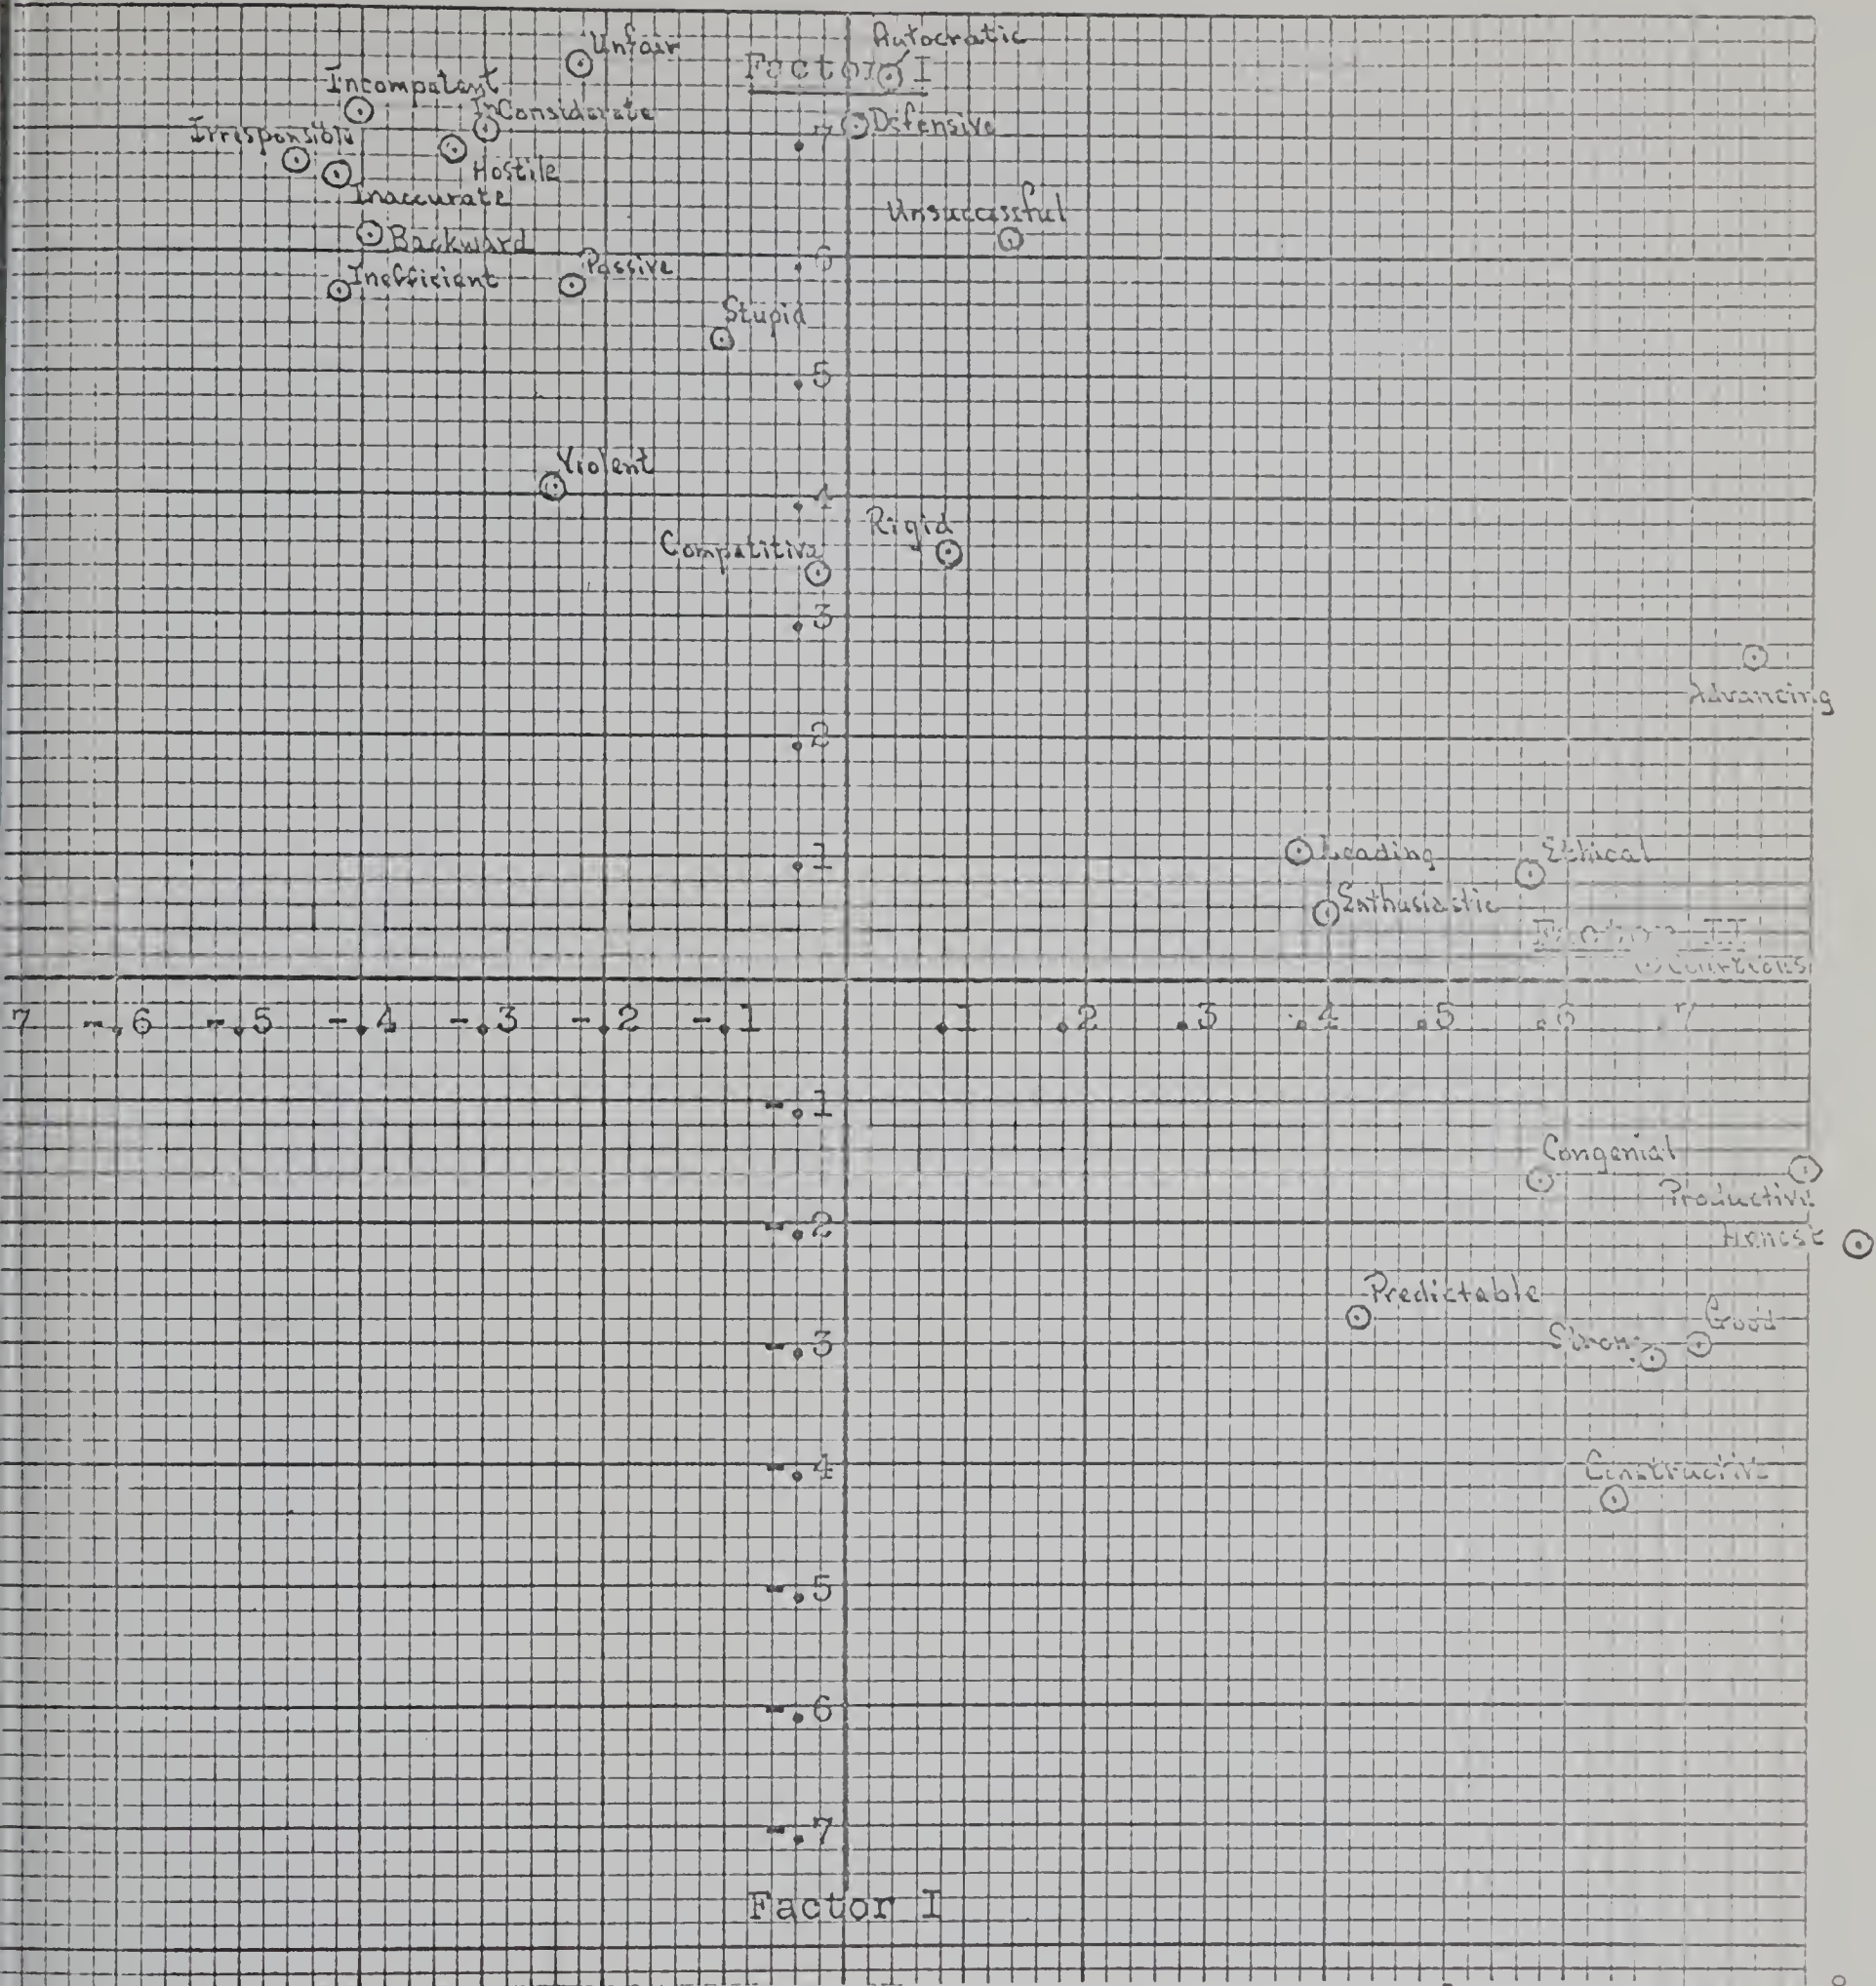 Unfair
Autocratic
Factor I
Incompetent
InConsiderate
Irresponsible
.7
Defensive
Hostile
Inaccurate
Unsuccessful
Backward
.6
Passive
Inefficient
Stupid
.5
Violent
.4
Rigid
Competitive
.3
Advancing
.2
.1
Leading
Ethical
Enthusiastic
Factor II
7 -.6 -.5 -.4 -.3 -.2 -.1 .1 .2 .3 .4 .5 .6 .7
-.1
Congenial
Productive
-.2
Honest
Predictable
Good
-.3
Strong
-.4
Constructive
-.5
-.6
-.7
Factor I